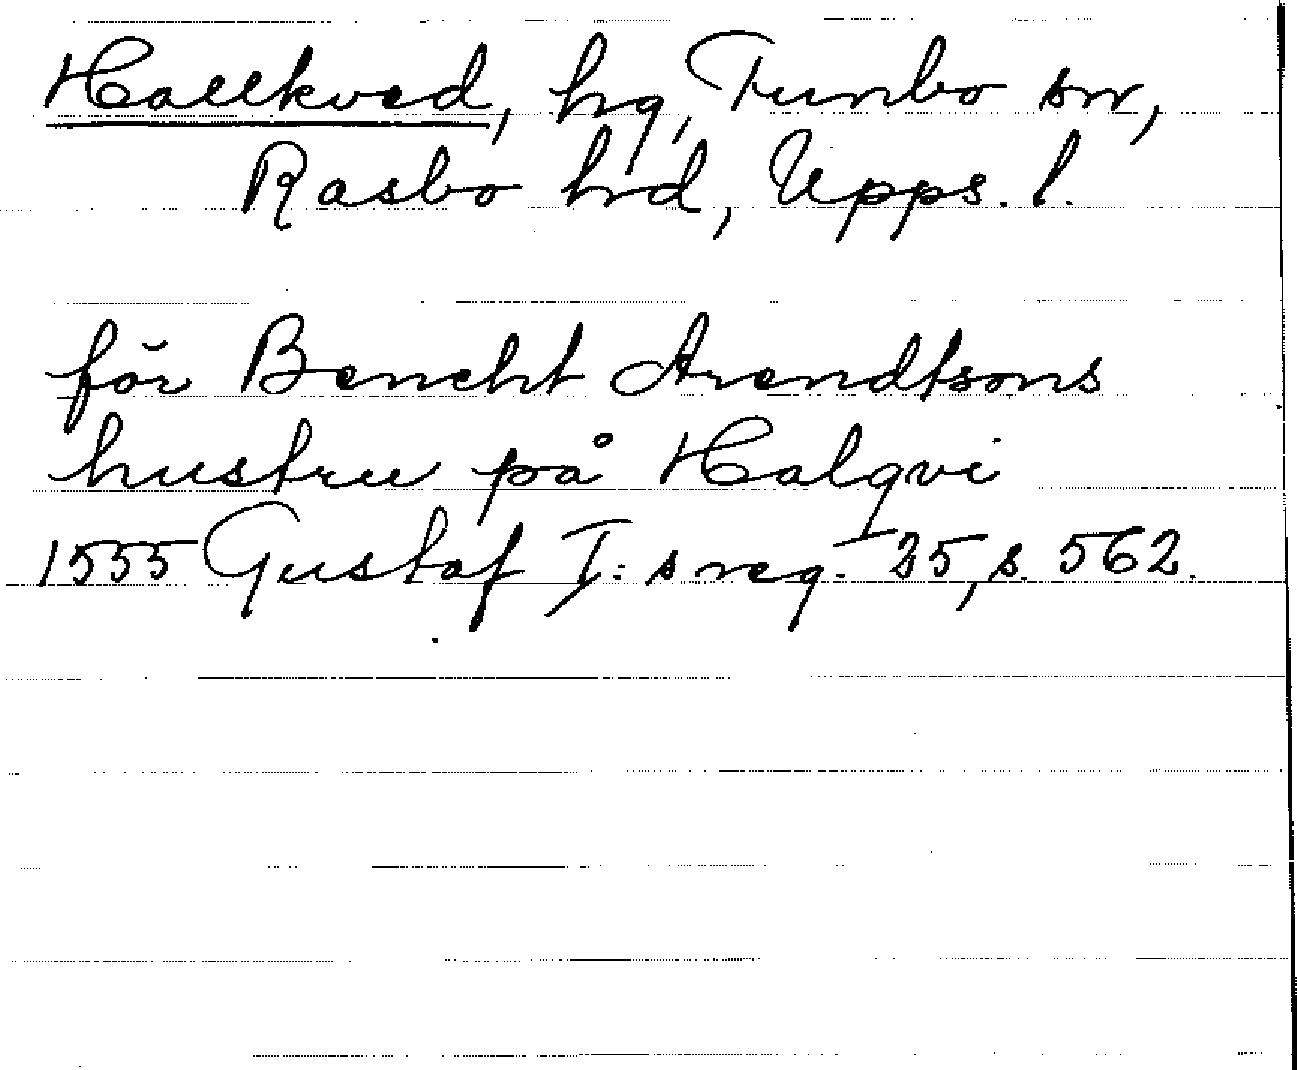 Hallkved, hg, Funbo sn,
Rasbo hd, Upps. l.
för Bencht Arendtsons
hustru på Halqvi
1555 Gustaf I: s reg. 25, s. 562.